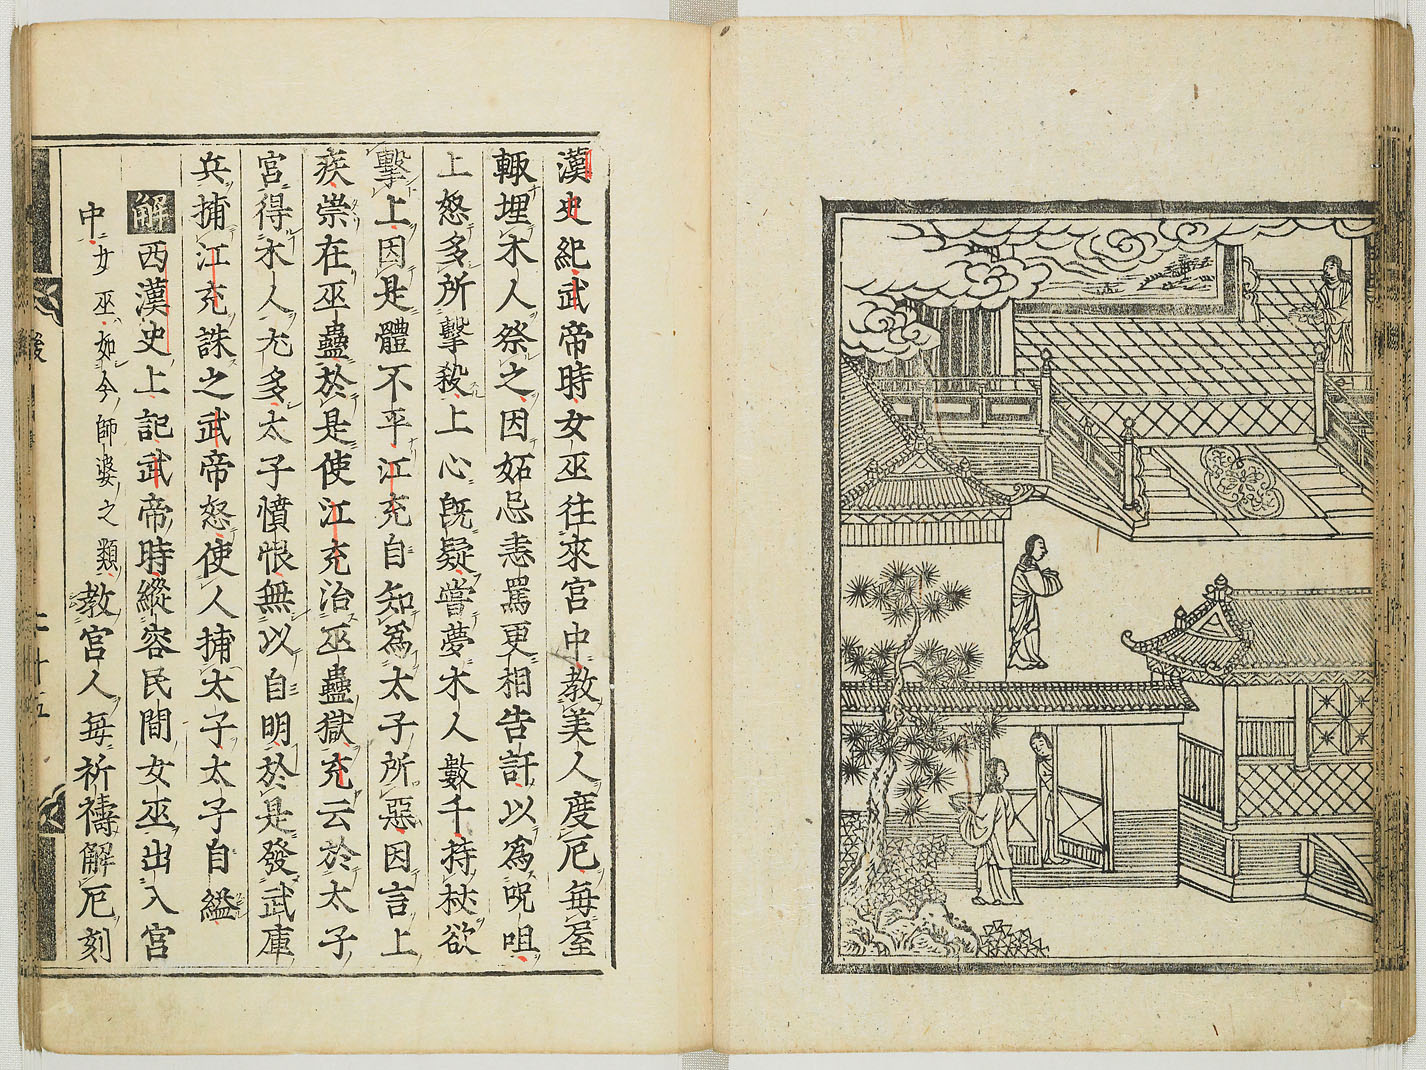 漢史紀武帝時女巫往來宮中教美人度厄每屋
輙埋木人祭之因妬忌恚罵更相告訐以為呪咀
上怒多所擊殺上心既疑嘗夢木人數千持杖欲
擊上因是體不平江充自知為太子所惡因言上
疾祟在巫蠱於是使江充治巫蠱獄充云於太子
宮得木人尤多太子憤恨無以自明於是發武庫
兵捕江充誅之武帝怒使人捕太子太子自縊
解西漢史上記武帝時縱容民間女巫出入宮
中女巫如今師婆之類教宮人每祈禱解厄刻
後
二十五